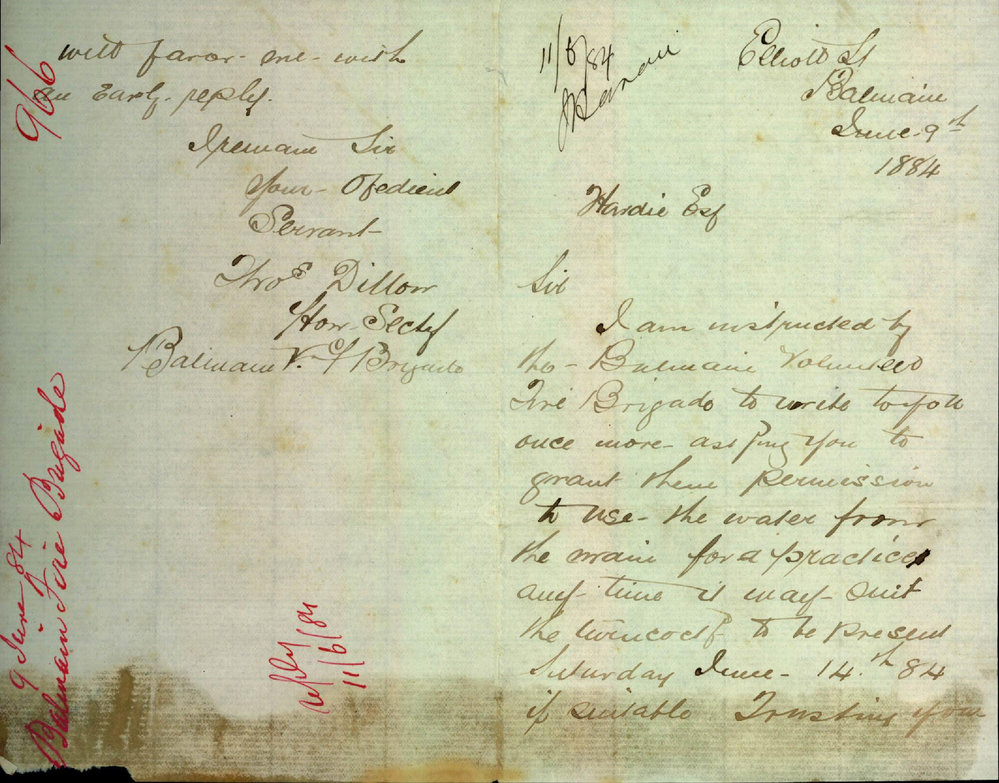 Elliott St
Balmain
June 9th
1884
Hardie Esq
Sir
I am instructed by
the Balmain Volunteer
Fire Brigade to write to you
once more asking you to
grant them permission
to use the water from
the main for a practice
any time it may suit
the turncock to be present
Saturday June 14th 84
if suitable Trusting you
will favor me with
an Early reply.
I remain Sir
Your Obedient
Servant
Thos Dillon
Hon Secty
Balmain V. F Brigade
11/6/84
966
9 June 84
Balmain Fire Brigade
11/6/84